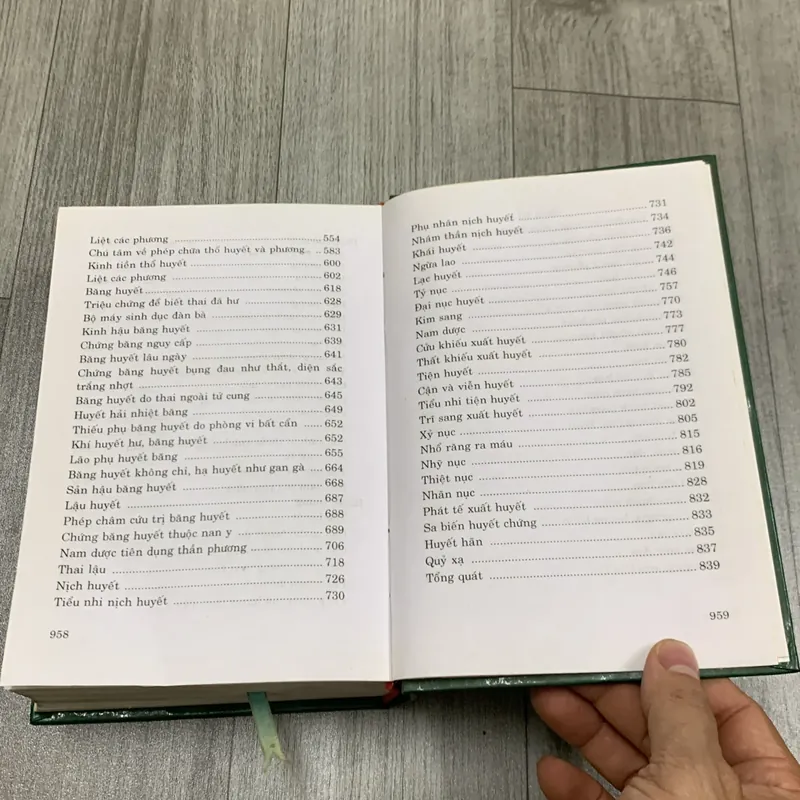 Liệt các phương ........ 554
Chú tâm về phép chữa thổ huyết và phương .. 583
Kinh tiền thổ huyết ........ 600
Liệt các phương ........ 602
Băng huyết ........ 618
Triệu chứng để biết thai đã hư ........ 628
Bộ máy sinh dục đàn bà ........ 629
Kinh hậu băng huyết ........ 631
Chứng băng nguy cấp ........ 639
Băng huyết lâu ngày ........ 641
Chứng băng huyết bụng đau như thắt, diện sắc
trắng nhợt ........ 643
Băng huyết do thai ngoài tử cung ........ 645
Huyết hải nhiệt băng ........ 649
Thiếu phụ băng huyết do phòng vi bất cẩn ........ 652
Khí huyết hư, băng huyết ........ 652
Lão phụ huyết băng ........ 655
Băng huyết không chỉ, hạ huyết như gan gà .... 664
Sản hậu băng huyết ........ 668
Lậu huyết ........ 687
Phép châm cứu trị băng huyết ........ 688
Chứng băng huyết thuộc nan y ........ 689
Nam dược tiên dụng thần phương ........ 706
Thai lậu ........ 718
Nịch huyết ........ 726
Tiểu nhi nịch huyết ........ 730
958
Phụ nhân nịch huyết ........ 731
Nhâm thần nịch huyết ........ 734
Khái huyết ........ 736
Ngừa lao ........ 742
Lạc huyết ........ 744
Tỷ nục ........ 746
Đại nục huyết ........ 757
Kim sang ........ 770
Nam dược ........ 773
Cửu khiếu xuất huyết ........ 777
Thất khiếu xuất huyết ........ 780
Tiện huyết ........ 782
Cận và viễn huyết ........ 785
Tiểu nhi tiện huyết ........ 792
Trĩ sang xuất huyết ........ 802
Xỷ nục ........ 805
Nhổ răng ra máu ........ 815
Nhỹ nục ........ 816
Thiệt nục ........ 819
Nhãn nục ........ 828
Phát tế xuất huyết ........ 832
Sa biến huyết chứng ........ 833
Huyết hãn ........ 835
Quỷ xạ ........ 837
Tổng quát ........ 839
959